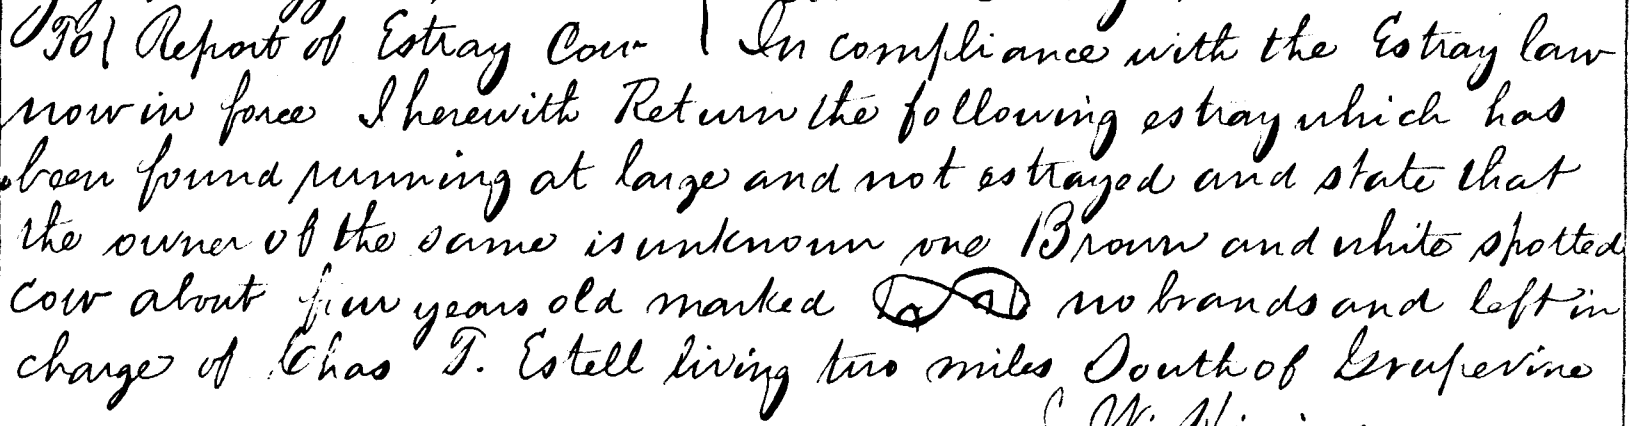 To Report of Estray Cow In compliance with the Estray law
now in force I herewith Return the following estray which has
been found running at large and not estrayed and state that
the owner of the same is unknown one Brown and white spotted
cow about years old marked no brands and left in
charge of Chas T. Estell living two miles South of Grapevine
W.